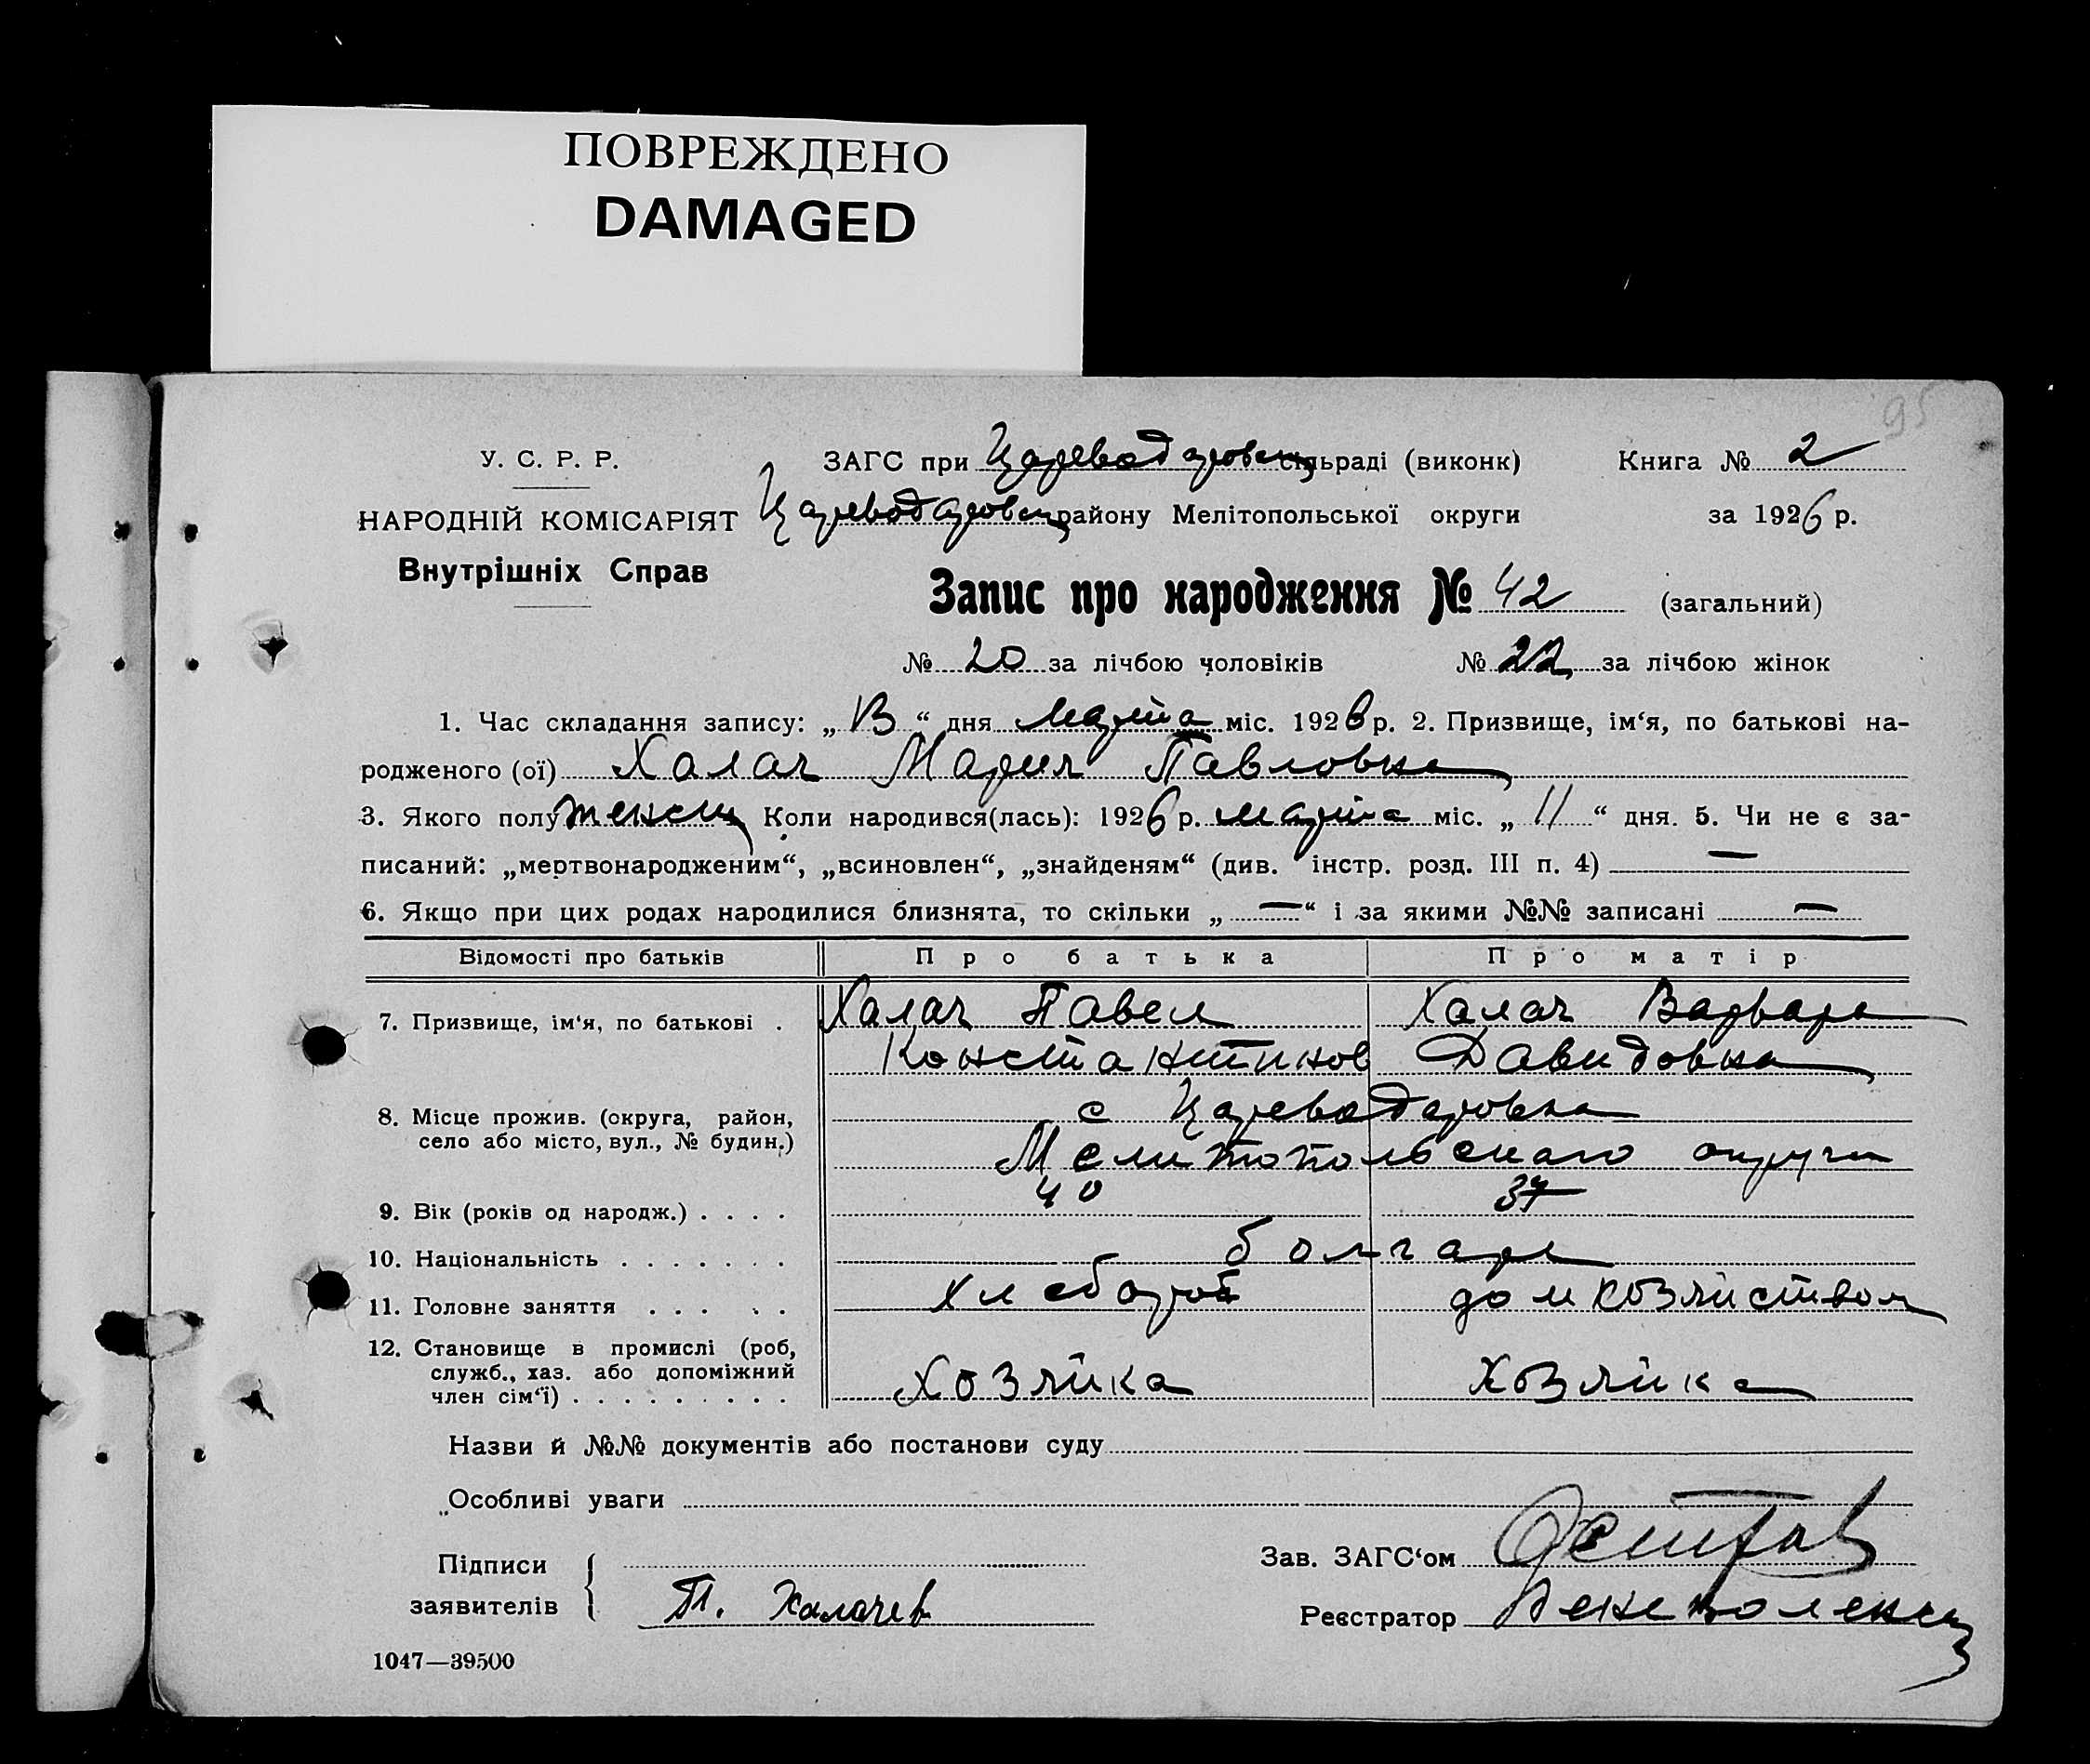 ПОВРЕЖДЕНО
DAMAGED
95
У. С. Р. Р.
НАРОДНІЙ КОМІСАРІЯТ
Внутрішніх Справ
ЗАГС при Цареводаровск сільраді (виконк)
Книга № 2
Цареводаровск району Мелітопольської округи
за 1926 р.
Запис про народження № 42 (загальний)
№ 20 за лічбою чоловіків № 22 за лічбою жінок
1. Час складання запису: „ 13 “ дня марта міс. 1926 р. 2. Призвище, ім‘я, по батькові на-
родженого (ої) Халач Мария Павловна
3. Якого полу женск Коли народився(лась): 1926 р. марта міс. „ 11 “ дня. 5. Чи не є за-
писаний: „мертвонародженим“, „всиновлен“, „знайденям“ (див. інстр. розд. III п. 4) —
6. Якщо при цих родах народилися близнята, то скільки „ — “ і за якими №№ записані —
Відомості про батьків Про батька Про матір
7. Призвище, ім‘я, по батькові . Халач Павел Халач Варвара
Константинов Давидовна
8. Місце прожив. (округа, район, с Цареводаровка
село або місто, вул., № будин.) Мелитопольскаго округи
9. Вік (років од народж.) . . . . 40 37
10. Національність . . . . . . . болгаре
11. Головне заняття . . . . . хлебороб домхозяйством
12. Становище в промислі (роб,
служб., хаз. або допоміжний
член сім‘ї) . . . . . . . . . хозяйка хозяйка
Назви й №№ документів або постанови суду
Особливі уваги
Підписи
заявителів П. Халачев
Зав. ЗАГС‘ом
Реєстратор
1047—39500